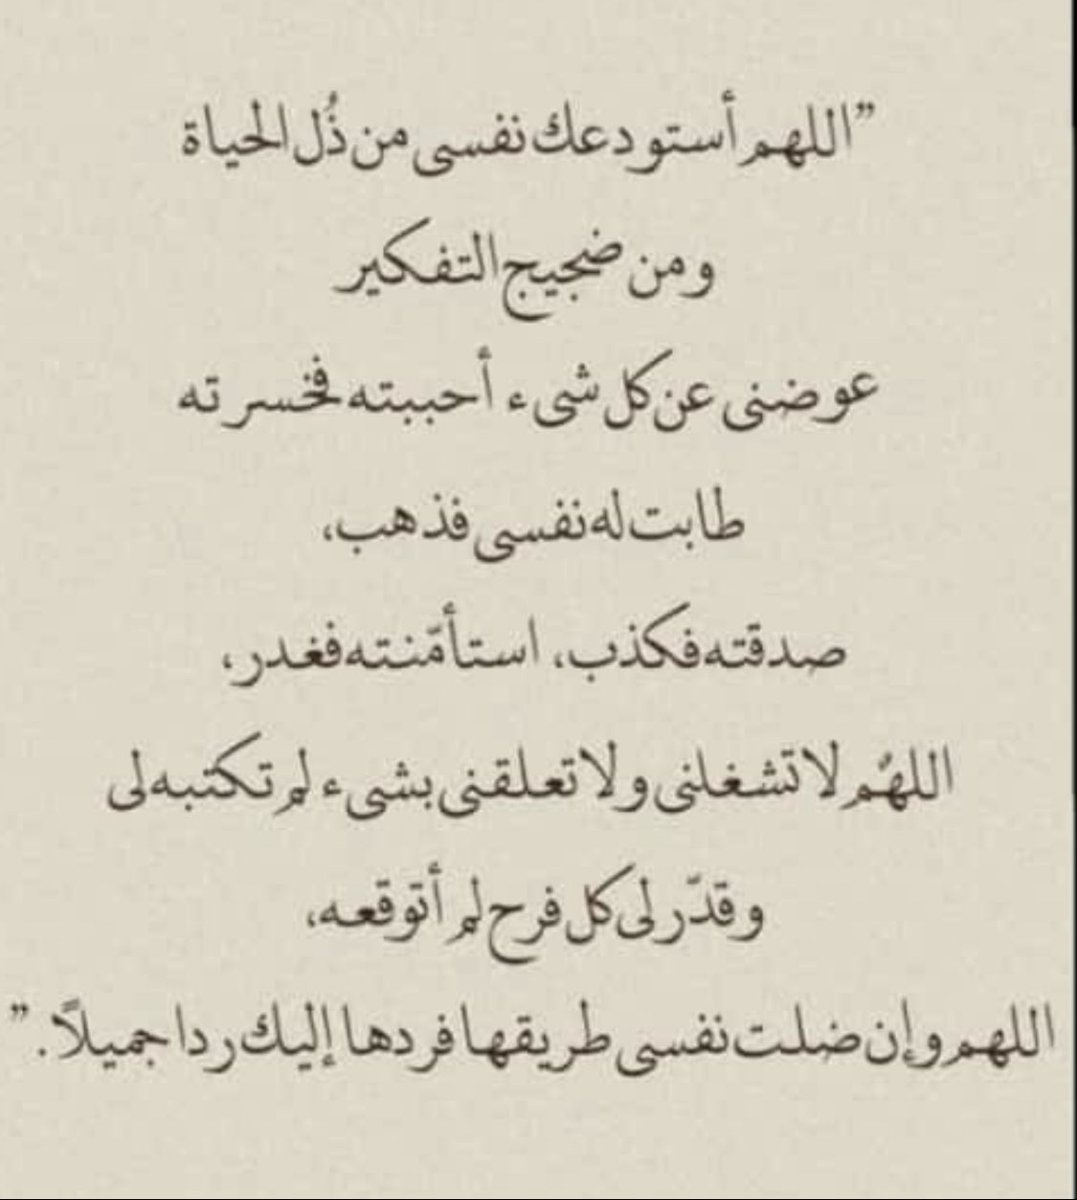 ”اللهم أستودعك نفسى من ذُل الحياة
ومن ضجيج التفكير
عوضنى عن كل شىء أحببته فخسرته
طابت له نفسى فذهب،
صدقته فكذب، استأمّنته فغدر،
اللهُم لا تشغلنى ولا تعلقنى بشىء لم تكتبه لى
وقدّر لى كل فرح لم أتوقعه،
اللهم وإن ضلت نفسى طريقها فردها إليك ردا جميلاً.”